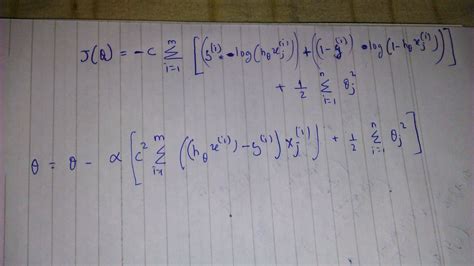 J(θ) = -c Σ_{i=1}^{m} [(y^{(i)} · log(h_θ x_j^{(i)}) + ((1-y^{(i)}) · log(1-h_θ x_j^{(i)}))]
+ 1/2 Σ_{i=1}^{n} θ_j^2
θ = θ - α [c^2 Σ_{i=1}^{m} ((h_θ x^{(i)}) - y^{(i)}) x_j^{(i)}) + 1/2 Σ_{i=1}^{n} θ_j^2]